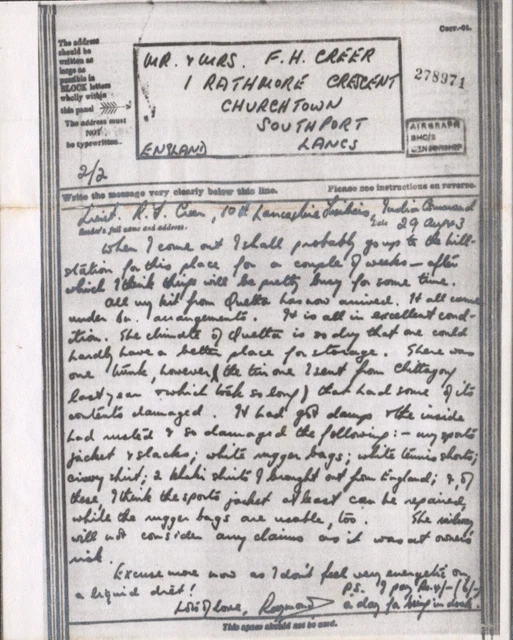 Corr.-91.
The address
should be
written as
large as
possible in
BLOCK letters
wholly within
this panel
The address must
NOT
be typewritten.
2/2
MR. & MRS. F. H. CREER
1 RATHMORE CRESCENT
CHURCHTOWN
SOUTHPORT
ENGLAND LANCS
278971
AIRGRAPH
CENSORSHIP
Write the message very clearly below this line. Please see instructions on reverse.
Lieut. R. F. Creer, 10th Lancashire Fusiliers, India Command
Sender's full name and address. Date 29 Aug 43
When I come out I shall probably go up to the hill-
station for this place for a couple of weeks – after
which I think things will be pretty busy for some time.
All my kit from Quetta has now arrived. It all came
under bn. arrangements. It is all in excellent cond-
ition. The climate of Quetta is so dry that one could
hardly have a better place for storage. There was
one trunk, however, (the tin one I sent from Chittagong
last year & which took so long) that had some of its
contents damaged. It had got damp & the inside
had rusted & so damaged the following :- my sports
jacket & slacks; white rugger bags; white tennis shorts;
shirt; 2 khaki shirts I brought out from England; &, of
these, I think the sports jacket at least can be repaired,
while the rugger bags are usable, too. The railway
will not consider any claims as it was at owner's
risk.
Excuse more now as I don't feel very energetic on
a liquid diet!
Lots of love, Raymond
P.S. I pay Rs. 4/- (6/-)
a day for being in dock.
This space should not be used.